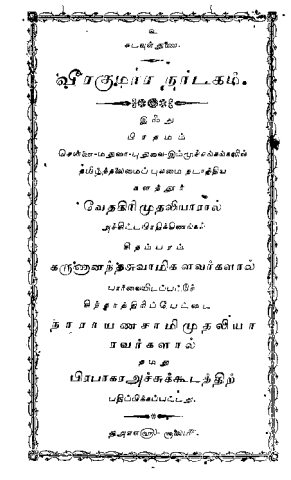 உ
கடவுள்துணை.
வீரகுமார நாடகம்.
இஃது
பிரதமப்
சென்னை-மதுரை-புதுவை-இம்மூச்சங்கங்களின்
தமிழ்த்தலைமைப் புலமை நடாத்திய
களத்தூர்
வேதகிரிமுதலியாரால்
அச்சிட்டபிரதிக்கிணங்க
சிதம்பரம்
கருணானந்தசுவாமிகளவர்களால்
பார்வையிடப்பட்டு
சிந்தாத்திரிப்பேட்டை
நாராயணசாமிமுதலியா
ரவர்களால்
தமது
பிரபாகரஅச்சுக்கூடத்திற்
பதிப்பிக்கப்பட்டது.